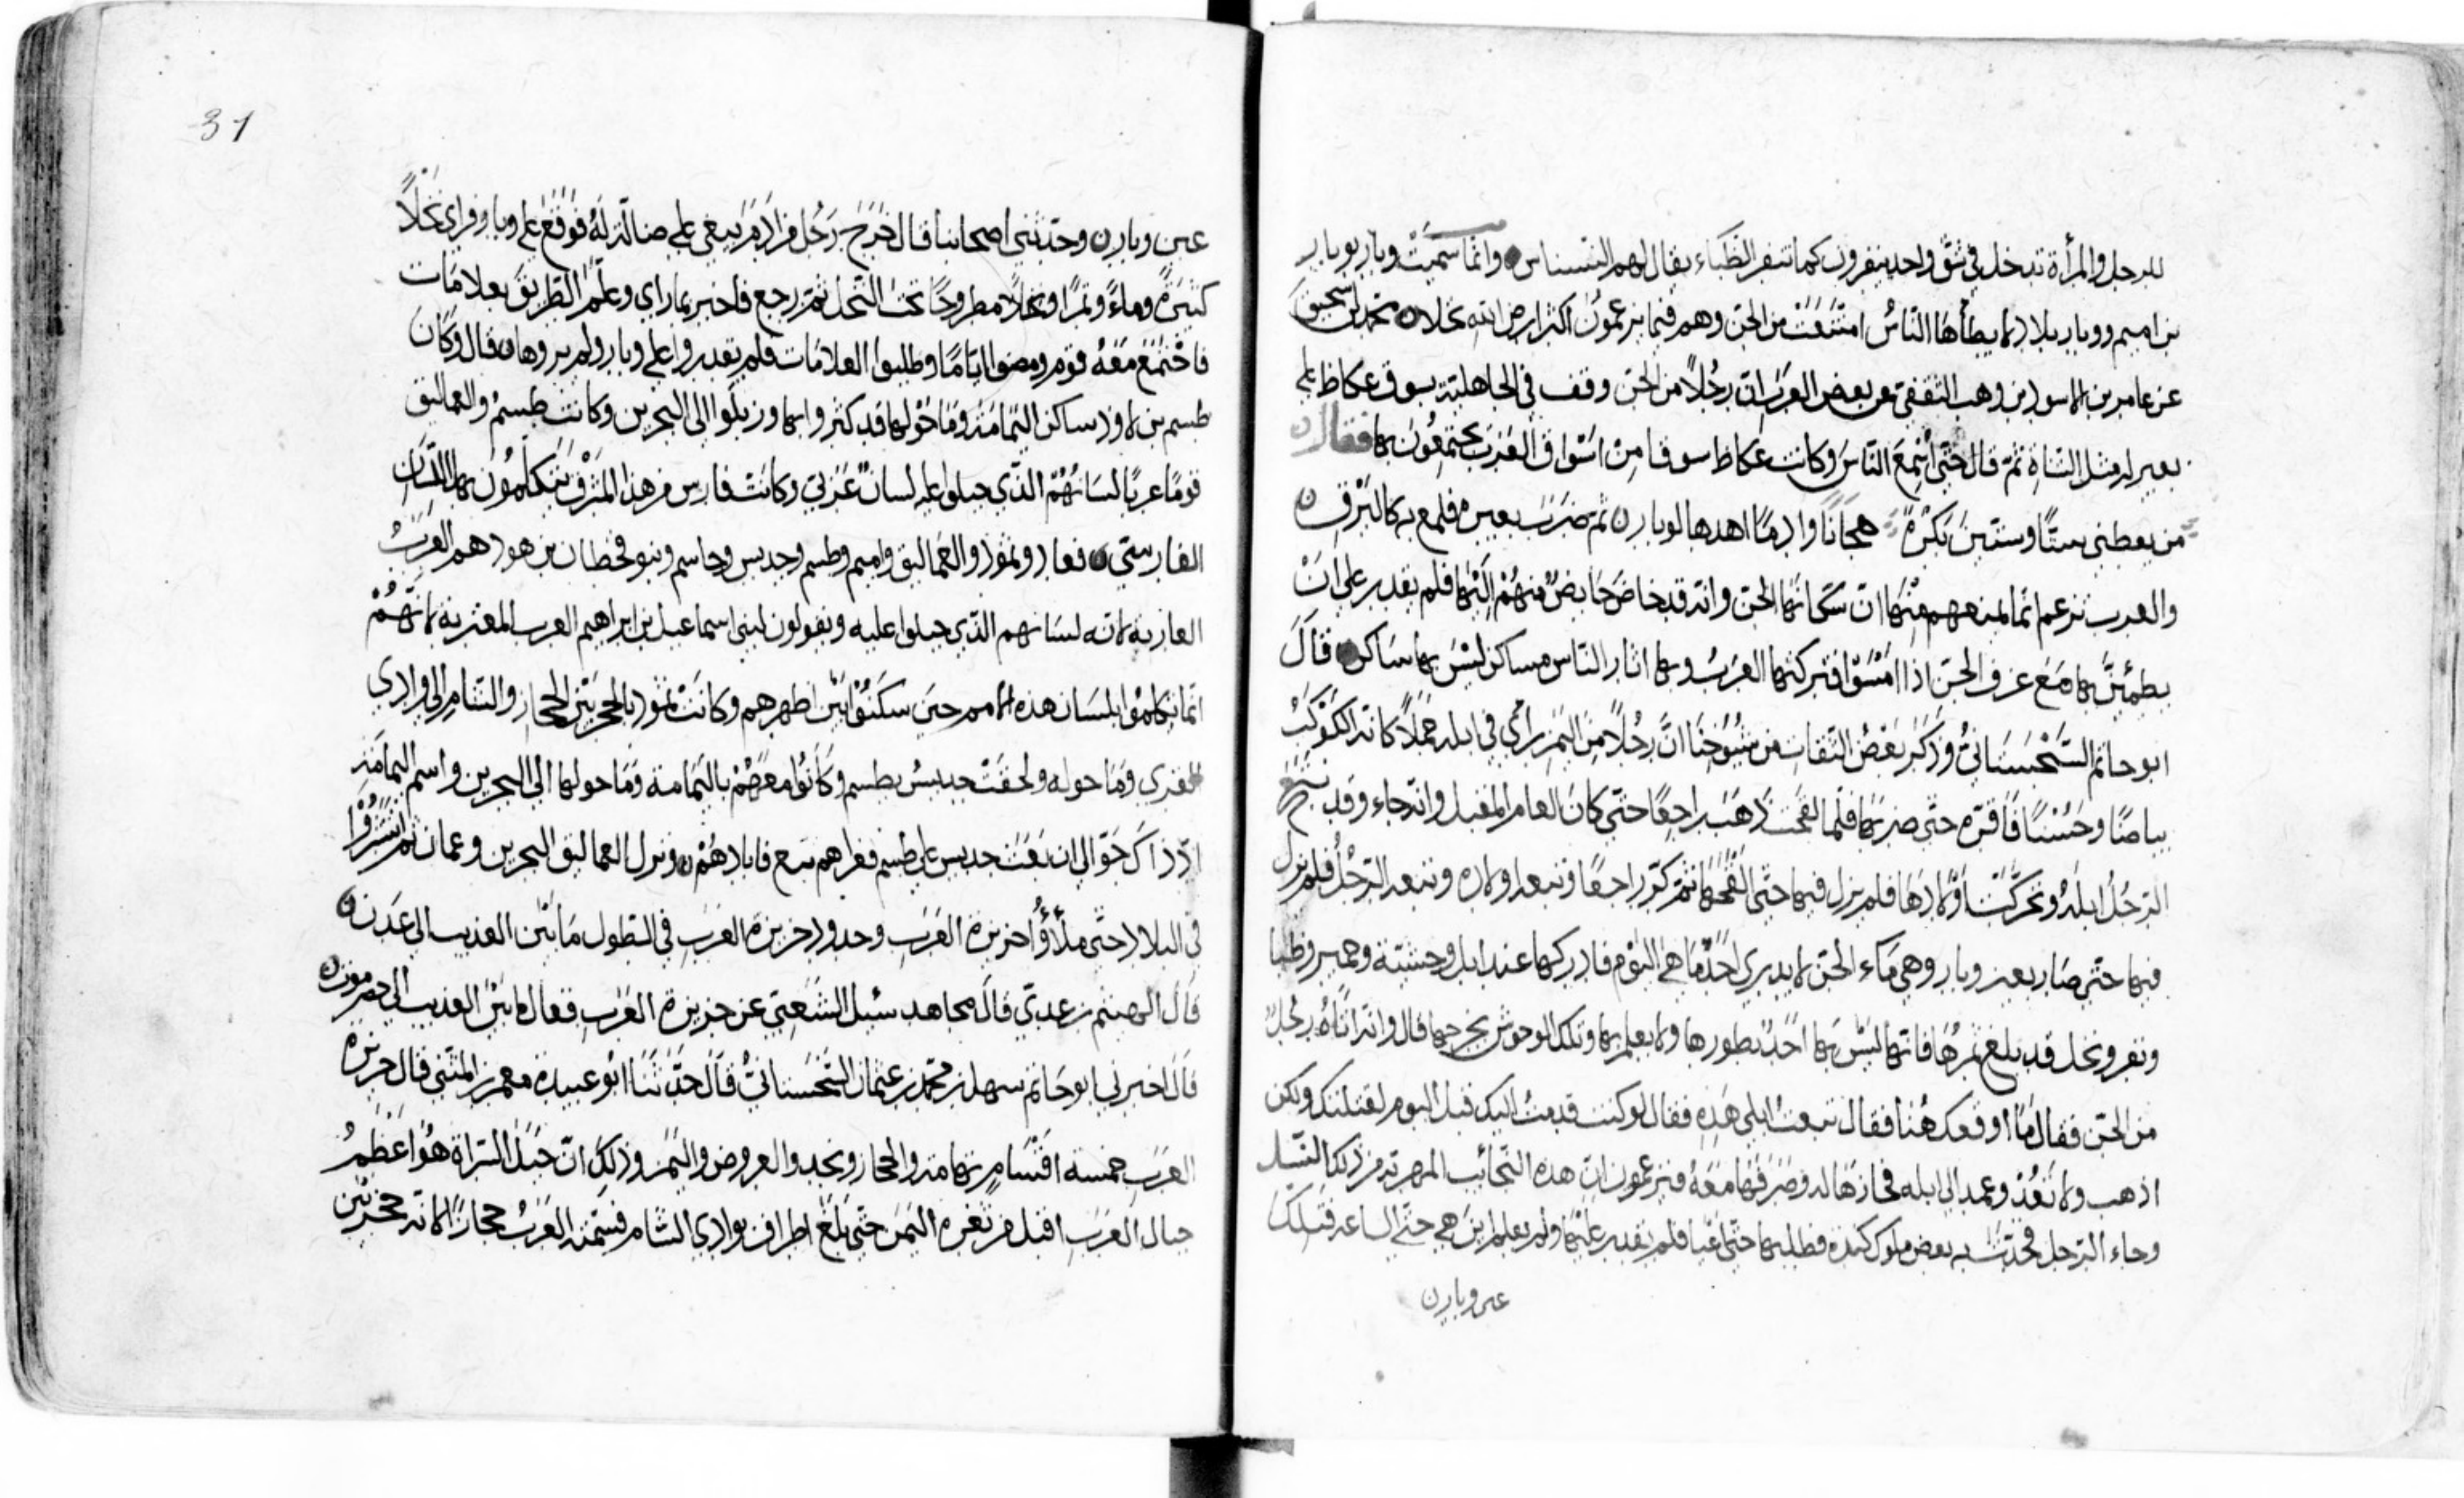 للرجل والمرأة تدخل في شق واحد ينفرون كما تنفر الظباء يقال لهم النسناس وانما سميت وبار بوبار
بن اميم ووبار بلاد لا يطأها الناس امتنعت من الجن وهم فيما يزعمون اكثر ارض الله نخلا محمد بن اسحق
عن عامر بن الاسود بن وهب الثقفي عن بعض العرب ان رجُلاً من الجن وقف في الجاهلية بسوق عكاظ على
بعير له مثل الشاة ثم قال حتى اسمع الناس وكانت عكاظ سوقا من اسواق العرب يجتمعون بها فقال
من يعطني ستًا وستين بكرة هجانًا وادمًا اهدها لوبار ثم ضرب بعيره فلمع به كالبرق
والعرب تزعم انما يمنعهم منها ان سكانها الجن وانه قد خاض خايض منهم اليها فلم يقدر على ان
يطمئن بها مع عزف الجن اذا امسوا فتركتها العرب وبها اثار الناس مساكن ليس بها ساكن قال
ابو حاتم السجستاني وذكر بعض الثقات من شيوخنا ان رجُلاً من اليمن راي في ابله جملاً كانه الكوكب
بياضًا وحسنًا فاقره حتى ضربها فلما القحت ذهب راجعًا حتى كان العام المقبل وانه جاء وقد نتج
الرجل ابله وتحركت اولادها فلم يزل فيها حتى القحها ثم كر راجعًا وتبعه اولاده وتبعه الرجل فلم يزل
فيها حتى صار بعين وبار وهي ماء الجن لا يدري احد ما هي اليوم فادركها عند ابل وحشية وحمير وظبا
وبقر ونخل قد بلغ ثمرها فانها ليس بها احد يطورها ولا يعلم بها وتلك الوحوش يخرجها قال وانه اتاه رجل
من الجن فقال ما اوقعك هنا فقال تبعت ابلي هذه فقال لو كنت قدمت اليك قبل اليوم لقتلتك ولكن
اذهب ولا تعُد وعمد الى ابله فحازها له وصرفها معه فتزعمون ان هذه النجائب المهرية من ذلك النسل
وجاء الرجل فحدث به بعض ملوك كندة فطلبها حتى اعيا فلم يقدر عليها ولم يعلم اين هي حتى الساعه فتلك
عين وبار
31
عين وبار وحدثني اصحابنا قال خرج رجل من اد مر يبغي على ضالة له فوقع على وبار فراي نخلاً
كثيرة وماءً وتمرًا ونخلاً مطروحًا تحت النخل ثم رجع فاخبر بما راي وعلم الطريق بعلامات
فاجتمع معه قوم ومضوا ايامًا وطلبوا العلامات فلم يقدروا على وبار ولم يروها قال وكان
طسم بن لاود ساكن اليمامة وما حولها قد كثروا بها وربلوا الى البحرين وكانت طسم والعماليق
قومًا عربًا لسانهم الذي جبلوا عليه لسان عربي وكانت فارس من هذا المشرق يتكلمون بهذا اللسان
الفارسي فعاد وثمود والعماليق واميم وطسم وجديس وجاسم وبنو قحطان بن هود هم العرب
العاربه لانه لسانهم الذي جبلوا عليه ويقولون لبني اسماعيل بن ابراهيم العرب المعتربة لانهم
انما تكلموا بلسان هذه الامم حين سكنوا بين اظهرهم وكانت ثمود بالحجر بين الحجاز والشام الى وادي
القرى وما حوله ولحقت جديس بطسم وكانوا معهم باليمامة وما حولها الى البحرين واسم اليمامة
اذ ذاك جو الى ان بغت جديس على طسم فغزاهم تبع فابادهم ونزل العماليق البحرين وعمان ثم انتشروا
في البلاد حتى ملاؤُا جزيرة العرب وحدود جزيرة العرب في الطول ما بين العذيب الى عدن
قال الهيثم بن عدي قال مجاهد سئل الشعبي عن جزيرة العرب فقال ما بين العذيب الى حضرموت
قال اخبرني ابو حاتم سهل بن محمد بن عثمان السجستاني قال حدثنا ابو عبيدة معمر بن المثنى قال جزيرة
العرب خمسه اقسام تهامه والحجاز ونجد والعروض واليمن وذلك ان جبل السراة هو اعظم
جبال العرب اقبل من ثغره اليمن حتى بلغ اطراف بوادي الشام فسمته العرب حجازًا لانه حجز بين